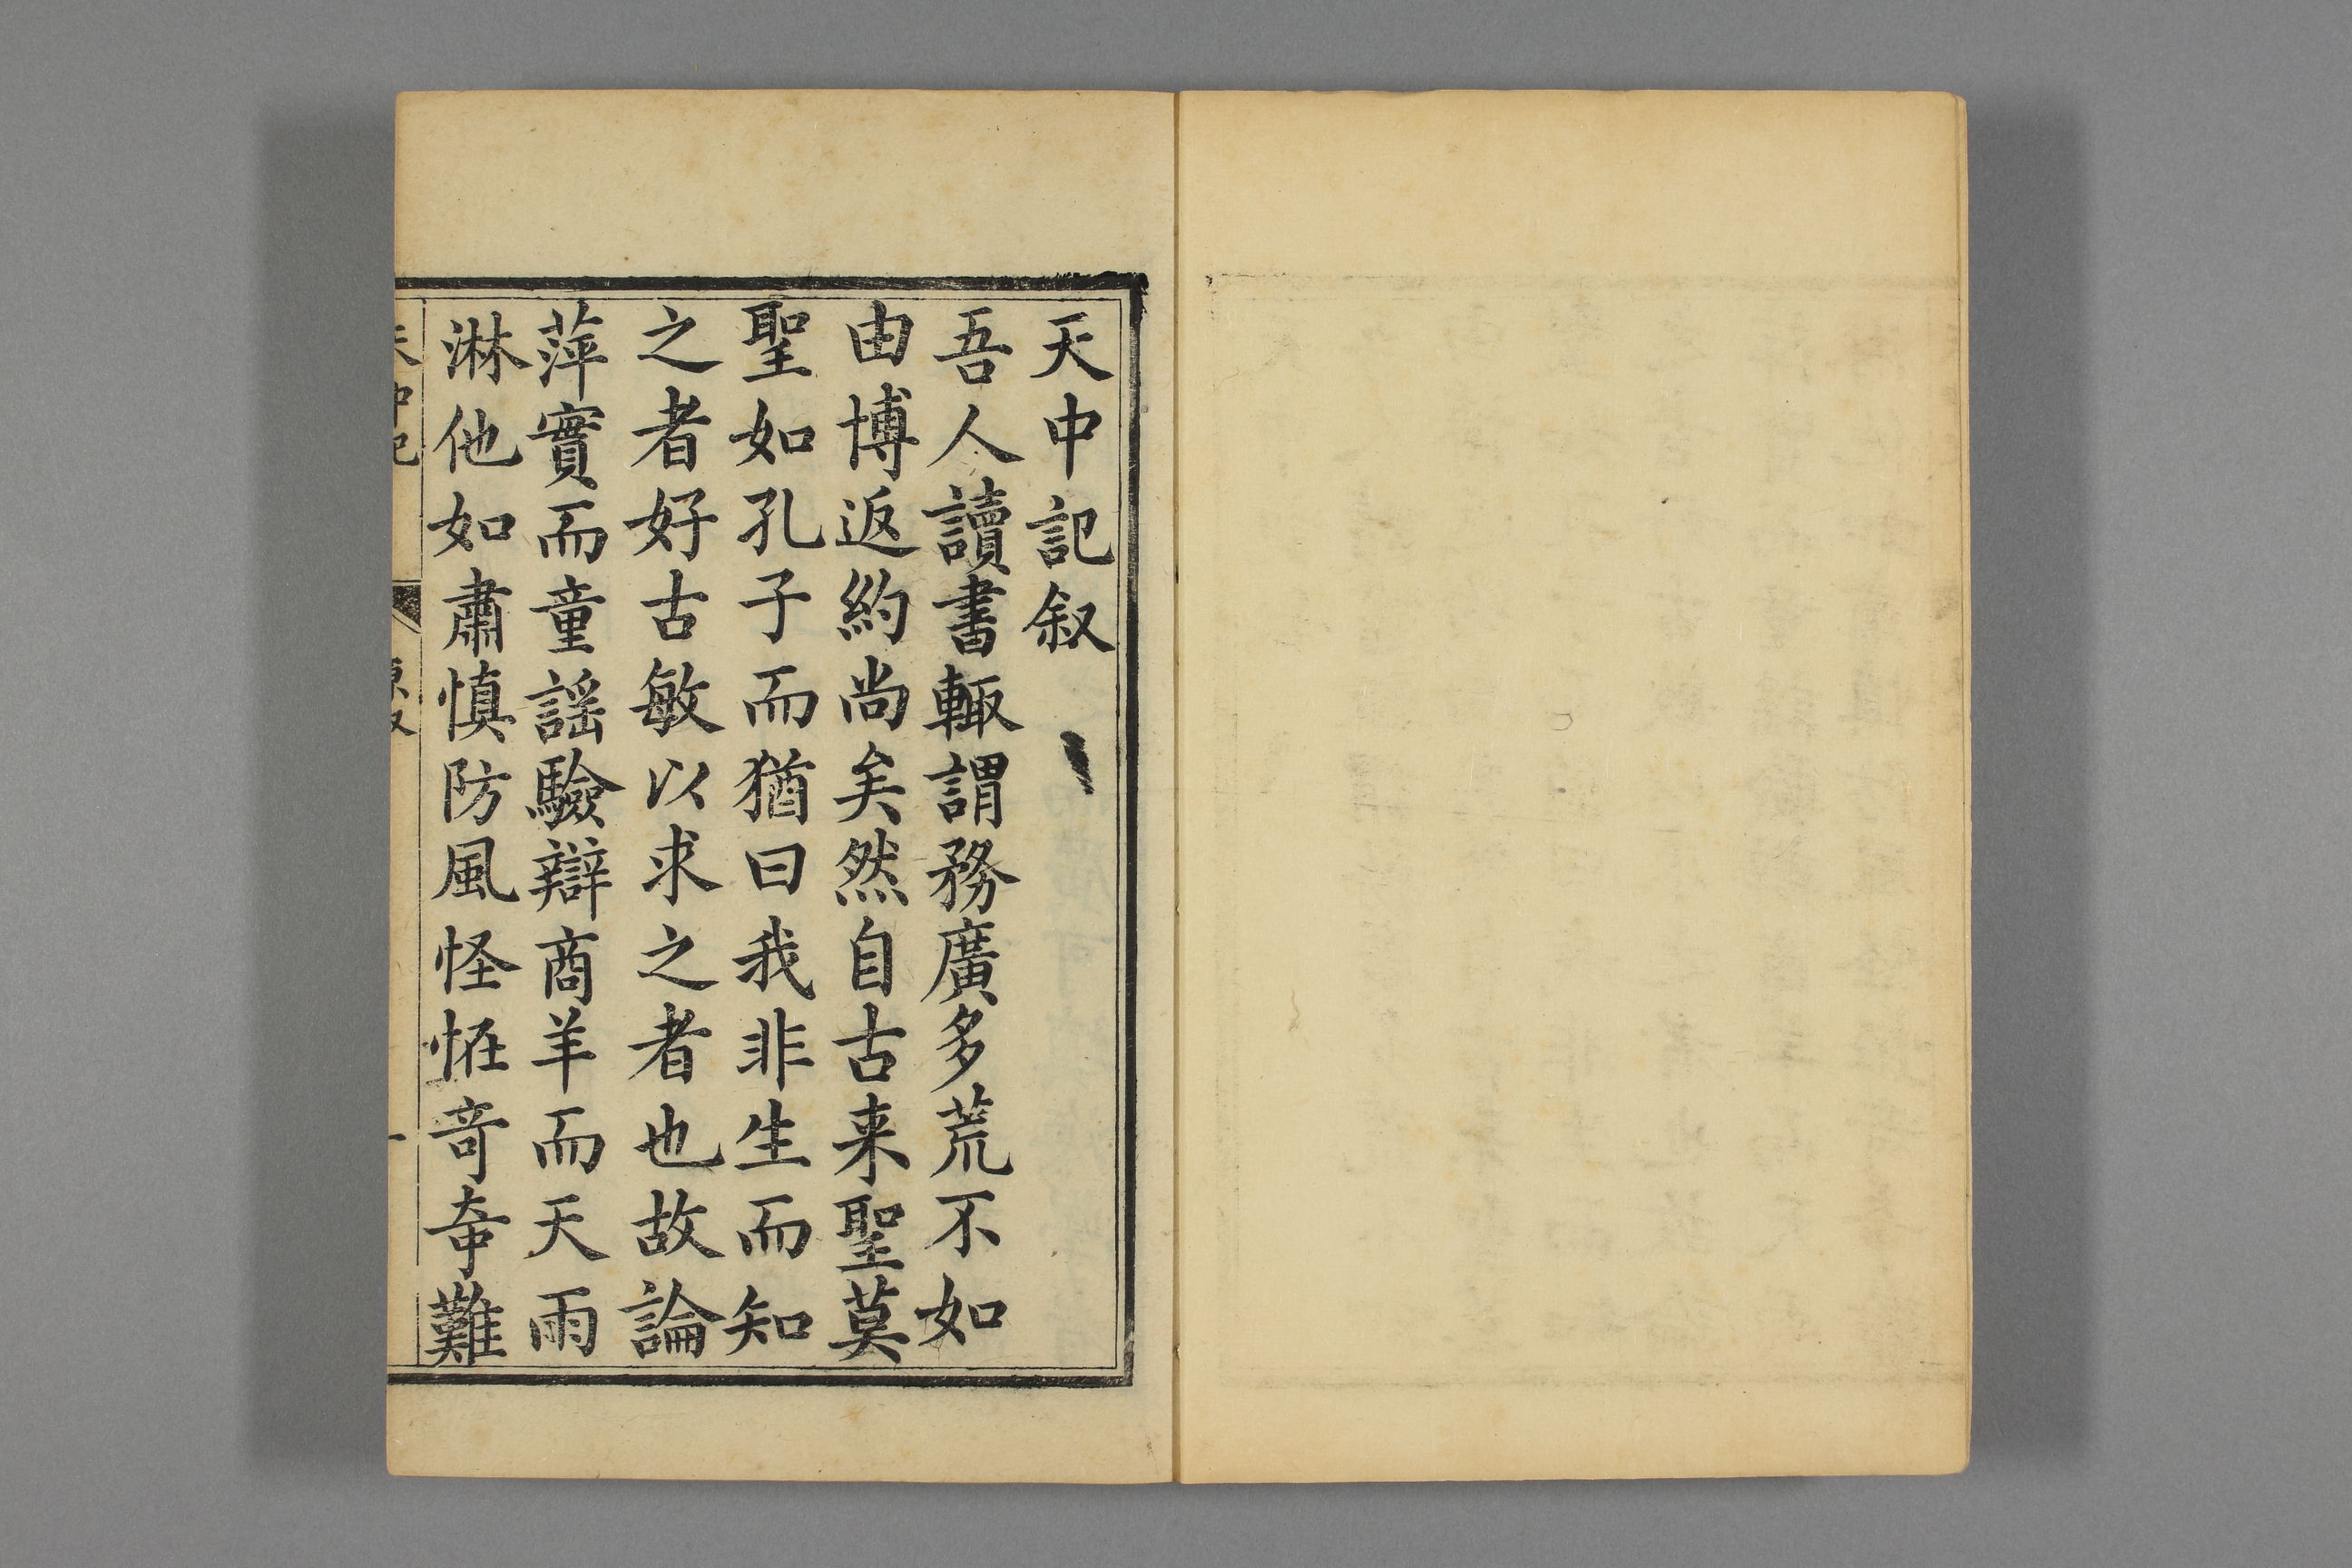 天中記叙
吾人讀書輙謂務廣多荒不如
由博返約尚矣然自古来聖莫
聖如孔子而猶曰我非生而知
之者好古敏以求之者也故論
萍實而童謡驗辯商羊而天雨
淋他如肅慎防風怪恠竒奇難
天中記